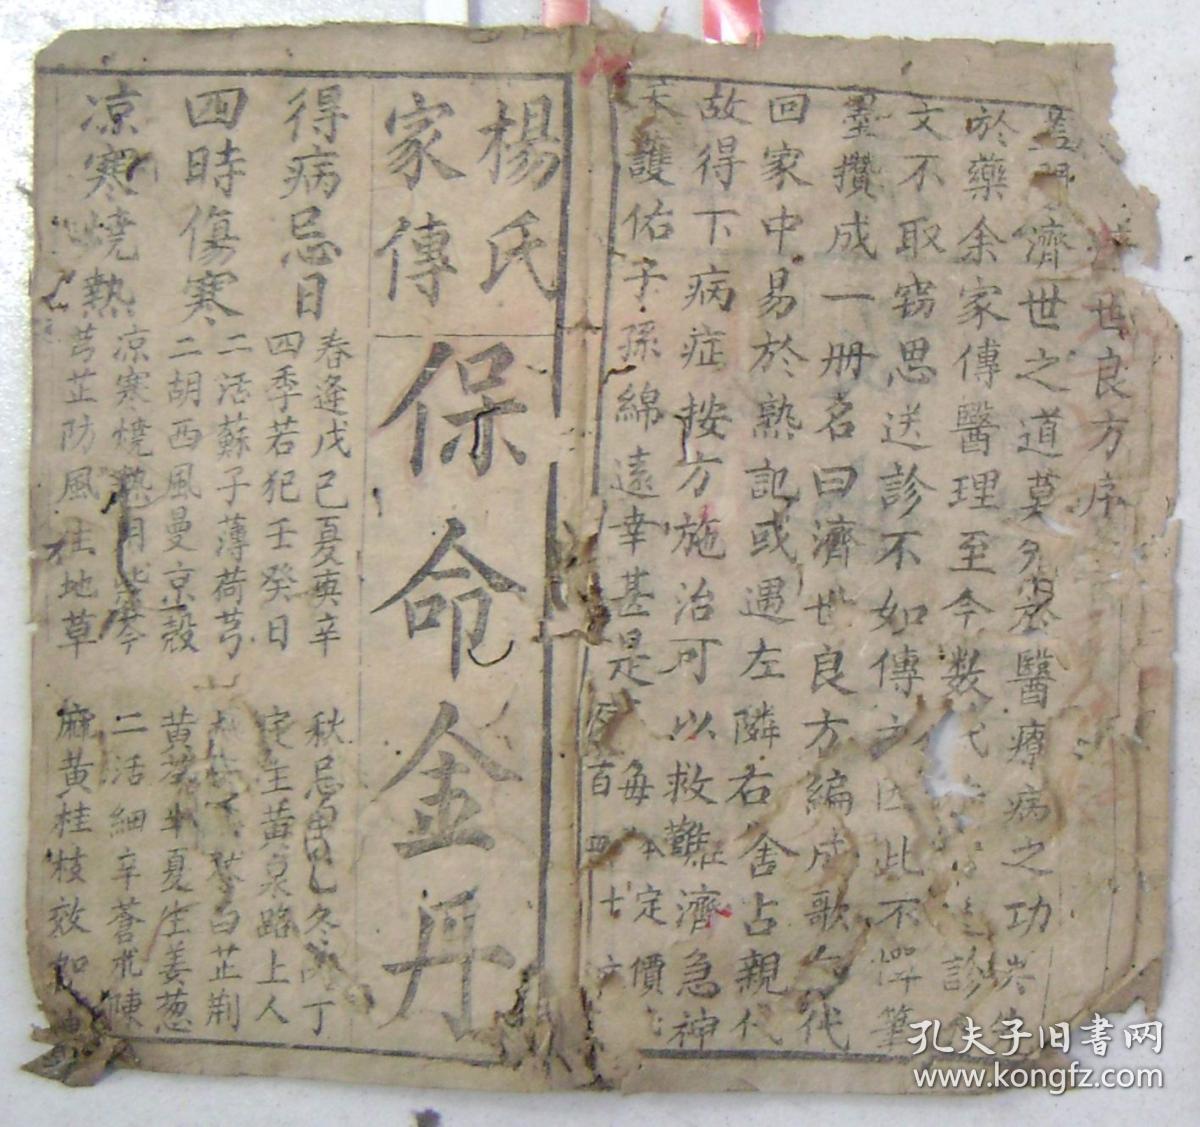 濟世良方序
濟世之道莫
醫療病之功
於藥余家傳醫理至今数代
診
文不取窃思送診不如傳方因此不憚筆
墨攢成一册名曰濟世良方編成歌
代
回家中易於熟記或遇左隣右舍占親代
故得下病症按方施治可以救難濟急神
天護佑子孫綿遠幸甚是
每本定價
百四十文
楊氏
家傳
保命金丹
得病忌日
春逢戊己夏庚辛
秋忌
冬丙丁
四季若犯壬癸日
定主黄泉路上人
四時傷寒
二活蘇子薄荷芎
白芷荆
二胡西風曼京殼
黄芩半夏生姜葱
凉寒燒熱
凉寒燒熱用柴芩
二活細辛蒼朮陳
芎芷防風生地草
麻黄桂枝效如神
孔夫子旧书网
www.kongfz.com